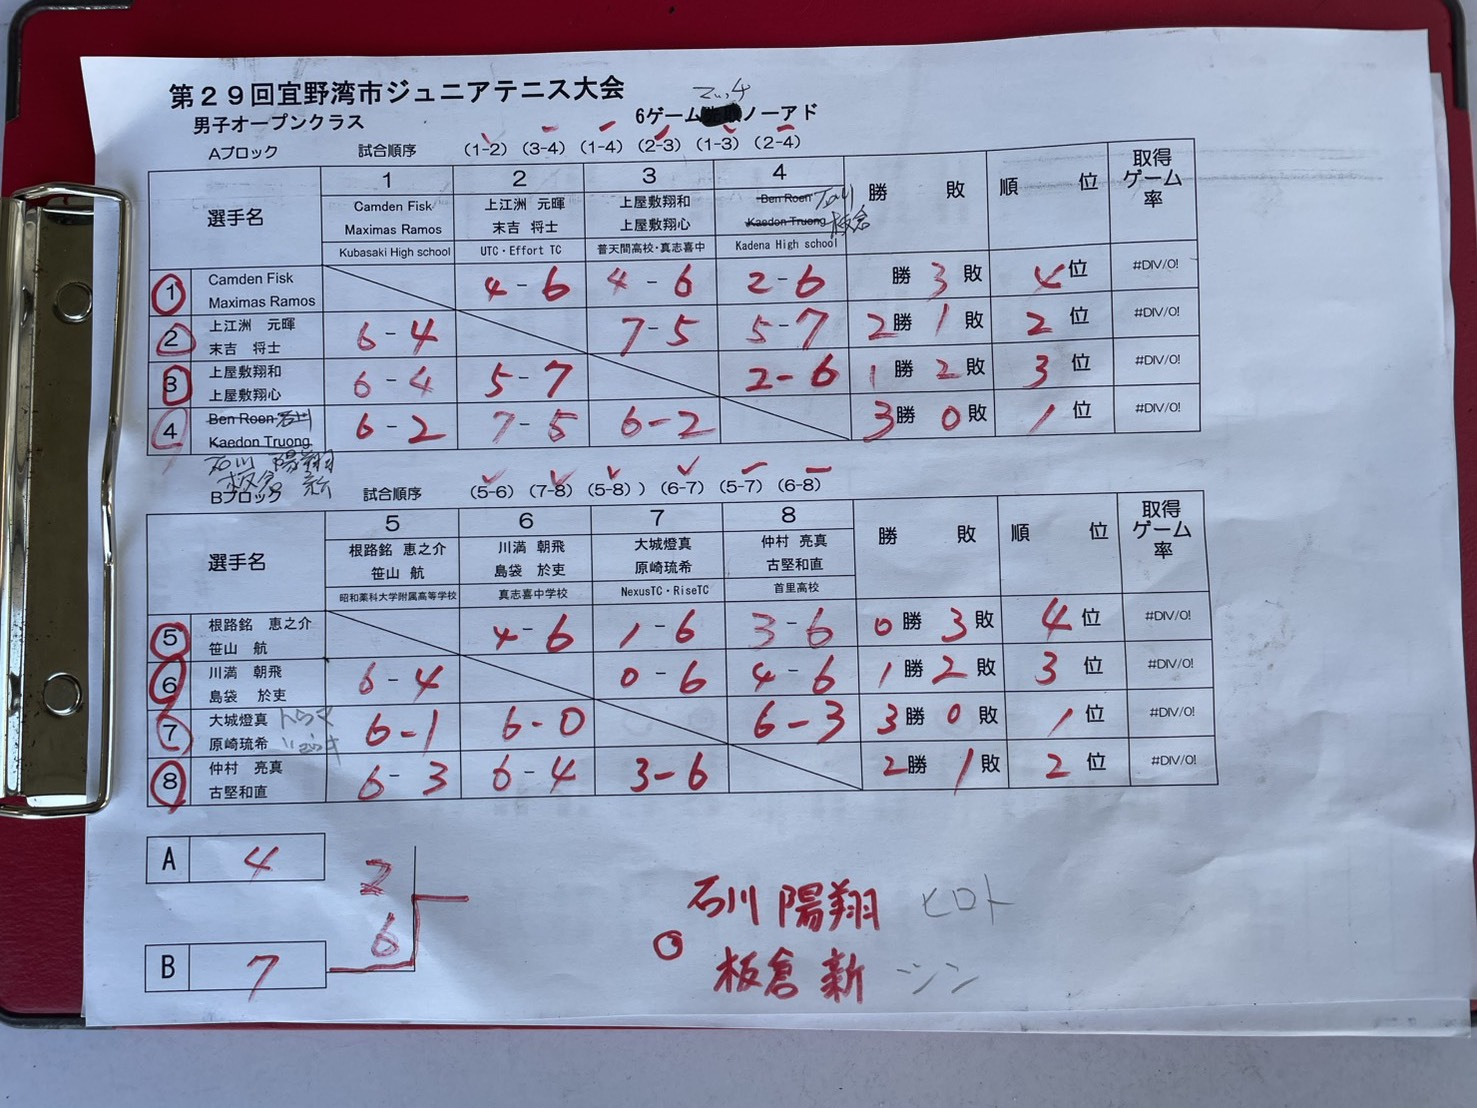 第29回宜野湾市ジュニアテニス大会
男子オープンクラス 6ゲーム マッチ ノーアド
Aブロック 試合順序 (1-2) (3-4) (1-4) (2-3) (1-3) (2-4)
選手名 1 2 3 4 勝 敗 順 位 取得ゲーム率
Camden Fisk 上江洲 元暉 上屋敷翔和 Ben Roen 石川
Maximas Ramos 末吉 将士 上屋敷翔心 Kaedon Truong 板倉
Kubasaki High school UTC・Effort TC 普天間高校・真志喜中 Kadena High school
1 Camden Fisk 4-6 4-6 2-6 勝 3敗 4位 #DIV/0!
Maximas Ramos
2 上江洲 元暉 6-4 7-5 5-7 2勝 1敗 2位 #DIV/0!
末吉 将士
3 上屋敷翔和 6-4 5-7 2-6 1勝 2敗 3位 #DIV/0!
上屋敷翔心
4 Ben Roen 石川 6-2 7-5 6-2 3勝 0敗 1位 #DIV/0!
Kaedon Truong
石川 陽翔
板倉 新
Bブロック 試合順序 (5-6) (7-8) (5-8) ) (6-7) (5-7) (6-8)
選手名 5 6 7 8 勝 敗 順 位 取得ゲーム率
根路銘 恵之介 川満 朝飛 大城燈真 仲村 亮真
笹山 航 島袋 於吏 原崎琉希 古堅和直
昭和薬科大学附属高等学校 真志喜中学校 NexusTC・RiseTC 首里高校
5 根路銘 恵之介 4-6 1-6 3-6 0勝 3敗 4位 #DIV/0!
笹山 航
6 川満 朝飛 6-4 0-6 4-6 1勝 2敗 3位 #DIV/0!
島袋 於吏
7 大城燈真 トウマ 6-1 6-0 6-3 3勝 0敗 1位 #DIV/0!
原崎琉希
8 仲村 亮真 6-3 6-4 3-6 2勝 1敗 2位 #DIV/0!
古堅和直
A 4 2
B 7 6
石川 陽翔 ヒロト
板倉 新 シン